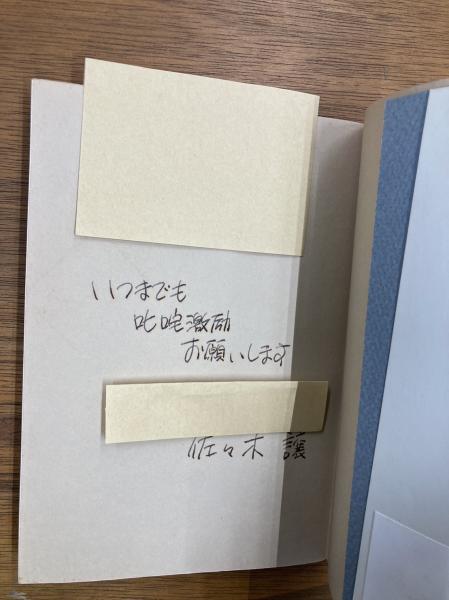 いつまでも
叱咤激励
お願いします
佐々木 譲